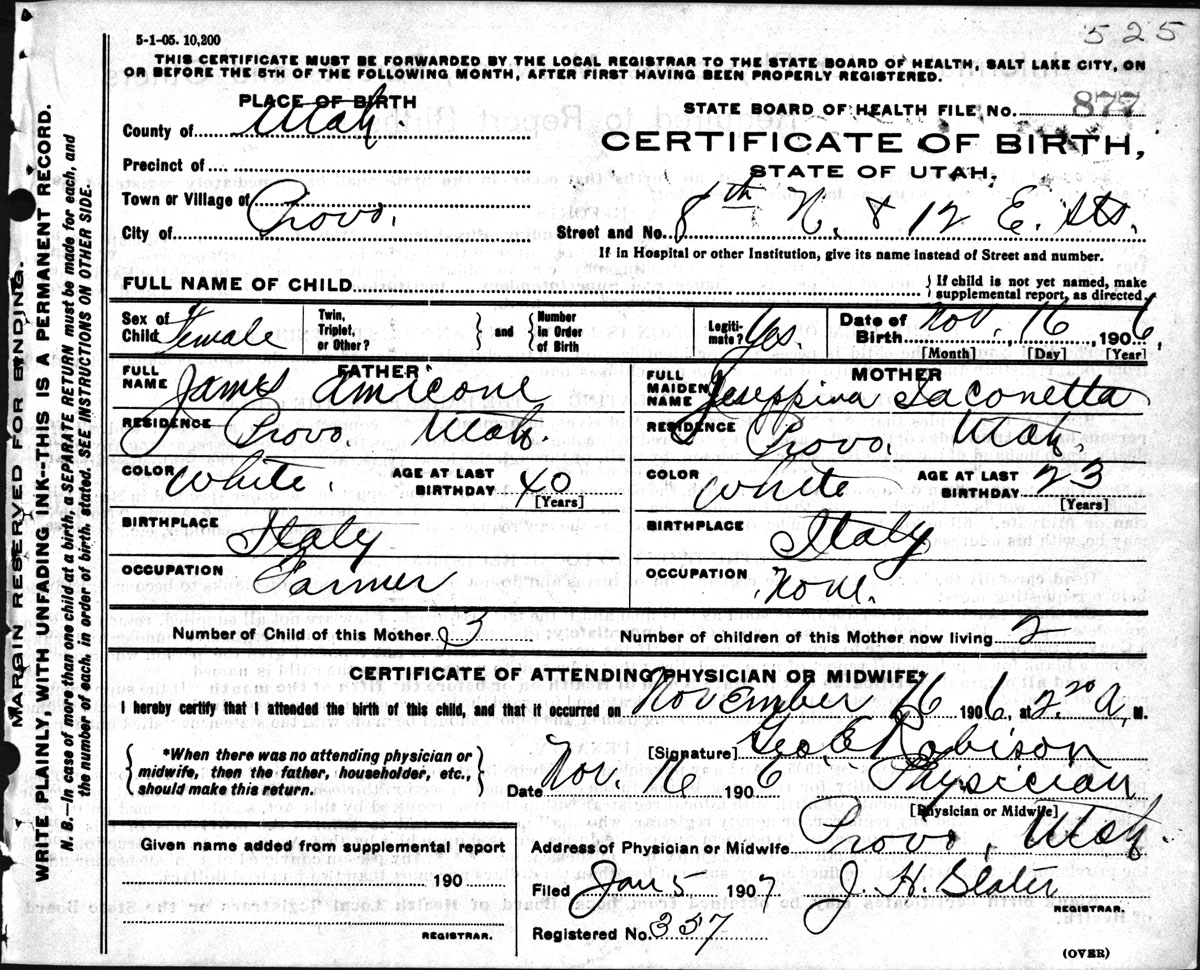 525
5-1-05. 10,200
THIS CERTIFICATE MUST BE FORWARDED BY THE LOCAL REGISTRAR TO THE STATE BOARD OF HEALTH, SALT LAKE CITY, ON
OR BEFORE THE 5TH OF THE FOLLOWING MONTH, AFTER FIRST HAVING BEEN PROPERLY REGISTERED.
PLACE OF BIRTH
STATE BOARD OF HEALTH FILE NO. 877
County of Utah
CERTIFICATE OF BIRTH,
Precinct of
STATE OF UTAH.
Town or Village of Provo.
City of
Street and No. 8th N. & 12 E. sts.
If in Hospital or other Institution, give its name instead of Street and number.
FULL NAME OF CHILD
If child is not yet named, make
supplemental report, as directed.
Sex of Child Female
Twin, Triplet, or Other? and Number in Order of Birth
Legitimate? Yes.
Date of Birth Nov. 16, 1906
[Month] [Day] [Year]
FATHER
FULL NAME James Amicone
RESIDENCE Provo. Utah
COLOR White. AGE AT LAST BIRTHDAY 40 [Years]
BIRTHPLACE Italy
OCCUPATION Farmer
MOTHER
FULL MAIDEN NAME Jeseppina Iaconetta
RESIDENCE Provo. Utah.
COLOR White AGE AT LAST BIRTHDAY 23 [Years]
BIRTHPLACE Italy
OCCUPATION None.
Number of Child of this Mother 3 Number of children of this Mother now living 2
CERTIFICATE OF ATTENDING PHYSICIAN OR MIDWIFE*
I hereby certify that I attended the birth of this child, and that it occurred on November 16 1906, at 2.20 A. M.
*When there was no attending physician or
midwife, then the father, householder, etc.,
should make this return.
[Signature] Geo. E. Robison
Date Nov 16 1906 Physician
[Physician or Midwife]
Address of Physician or Midwife Provo, Utah.
Given name added from supplemental report
190
REGISTRAR.
Filed Jan 5 1907 J. H. Slater
REGISTRAR.
Registered No. 357
(OVER)
MARGIN RESERVED FOR BINDING.
WRITE PLAINLY, WITH UNFADING INK--THIS IS A PERMANENT RECORD.
N. B.--In case of more than one child at a birth, a SEPARATE RETURN must be made for each, and
the number of each, in order of birth, stated. SEE INSTRUCTIONS ON OTHER SIDE.